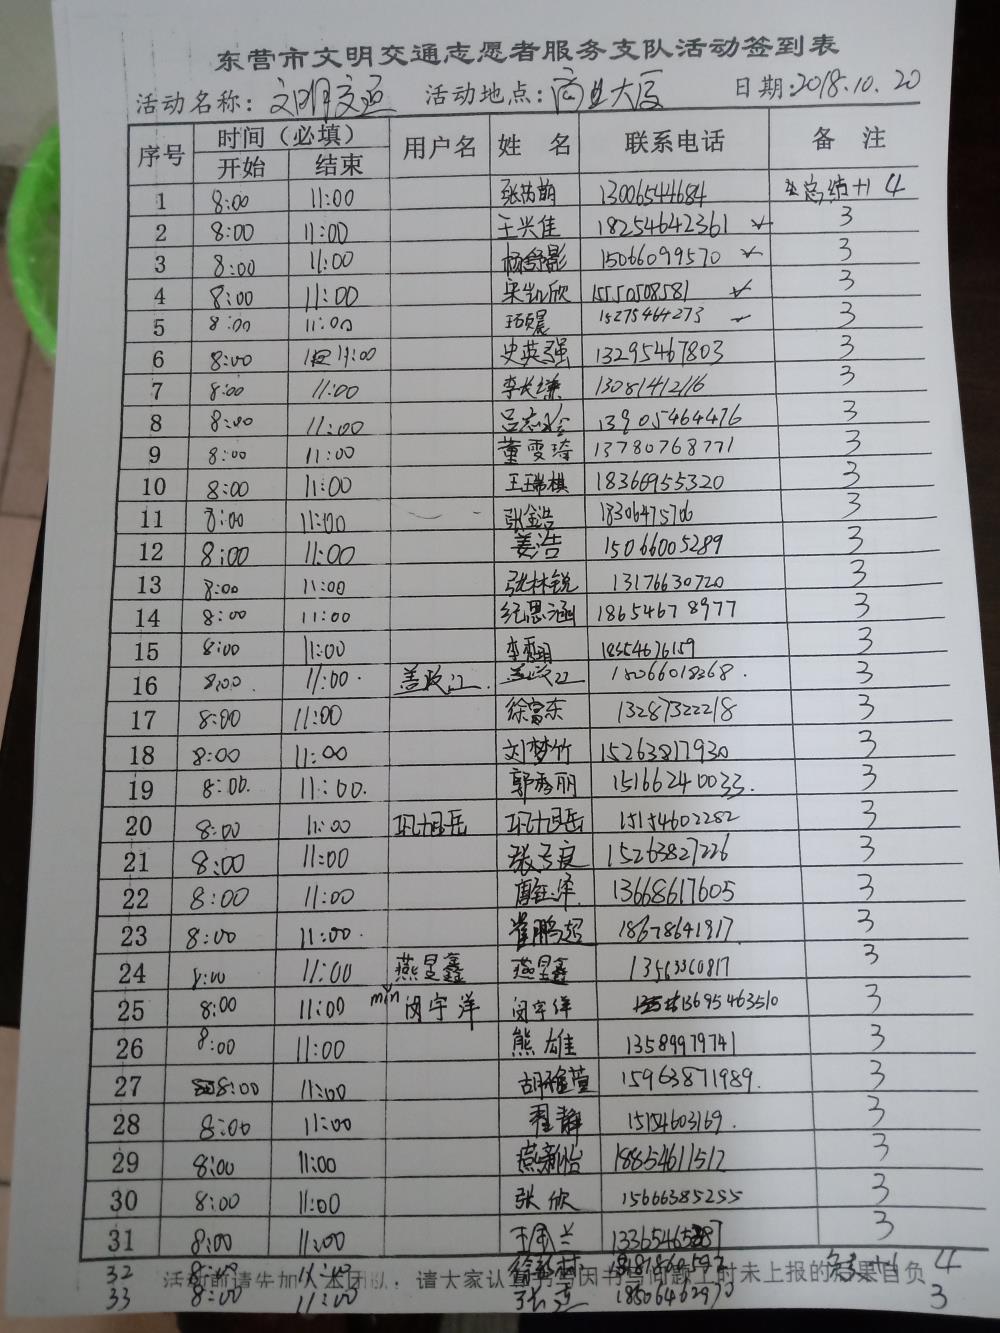 东营市文明交通志愿者服务支队活动签到表
活动名称：文明交通 活动地点：商业大厦 日期：2018.10.20
序号 时间（必填） 用户名 姓 名 联系电话 备 注
开始 结束
1 8:00 11:00 13006544684 总结+1 4
2 8:00 11:00 王兴佳 18254642361 3
3 8:00 11:00 杨舒影 15066099570 3
4 8:00 11:00 宋凯欣 15550508581 3
5 8:00 11:00 15275464273 3
6 8:00 11:00 史英强 13295467803 3
7 8:00 11:00 13081412116 3
8 8:00 11:00 13905464476 3
9 8:00 11:00 董雯琦 13780768771 3
10 8:00 11:00 王瑞棋 18366955320 3
11 8:00 11:00 张金浩 18306475706 3
12 8:00 11:00 姜浩 15066005289 3
13 8:00 11:00 张林锐 13176630720 3
14 8:00 11:00 纪思涵 18654678977 3
15 8:00 11:00 18354676159 3
16 8:00 11:00 盖政江 盖政江 18066018368 3
17 8:00 11:00 徐富东 13287322218 3
18 8:00 11:00 刘梦竹 15263817930 3
19 8:00 11:00 郭秀丽 15166240033 3
20 8:00 11:00 巩旭岳 巩旭岳 15154602282 3
21 8:00 11:00 15263827226 3
22 8:00 11:00 13668617605 3
23 8:00 11:00 崔鹏超 18678641917 3
24 8:00 11:00 燕昱鑫 燕昱鑫 13563360817 3
25 8:00 11:00 min 闵宇洋 闵宇洋 13695463510 3
26 8:00 11:00 熊雄 13589979741 3
27 8:00 11:00 15963871989 3
28 8:00 11:00 程静 15154603169 3
29 8:00 11:00 燕新怡 18854611512 3
30 8:00 11:00 张欣 15666385255 3
31 8:00 11:00 3
32 8:00 11:00 4
活动前请先加入本团队，请大家认真书写因书写问题工时未上报的后果自负
33 8:00 11:00 3